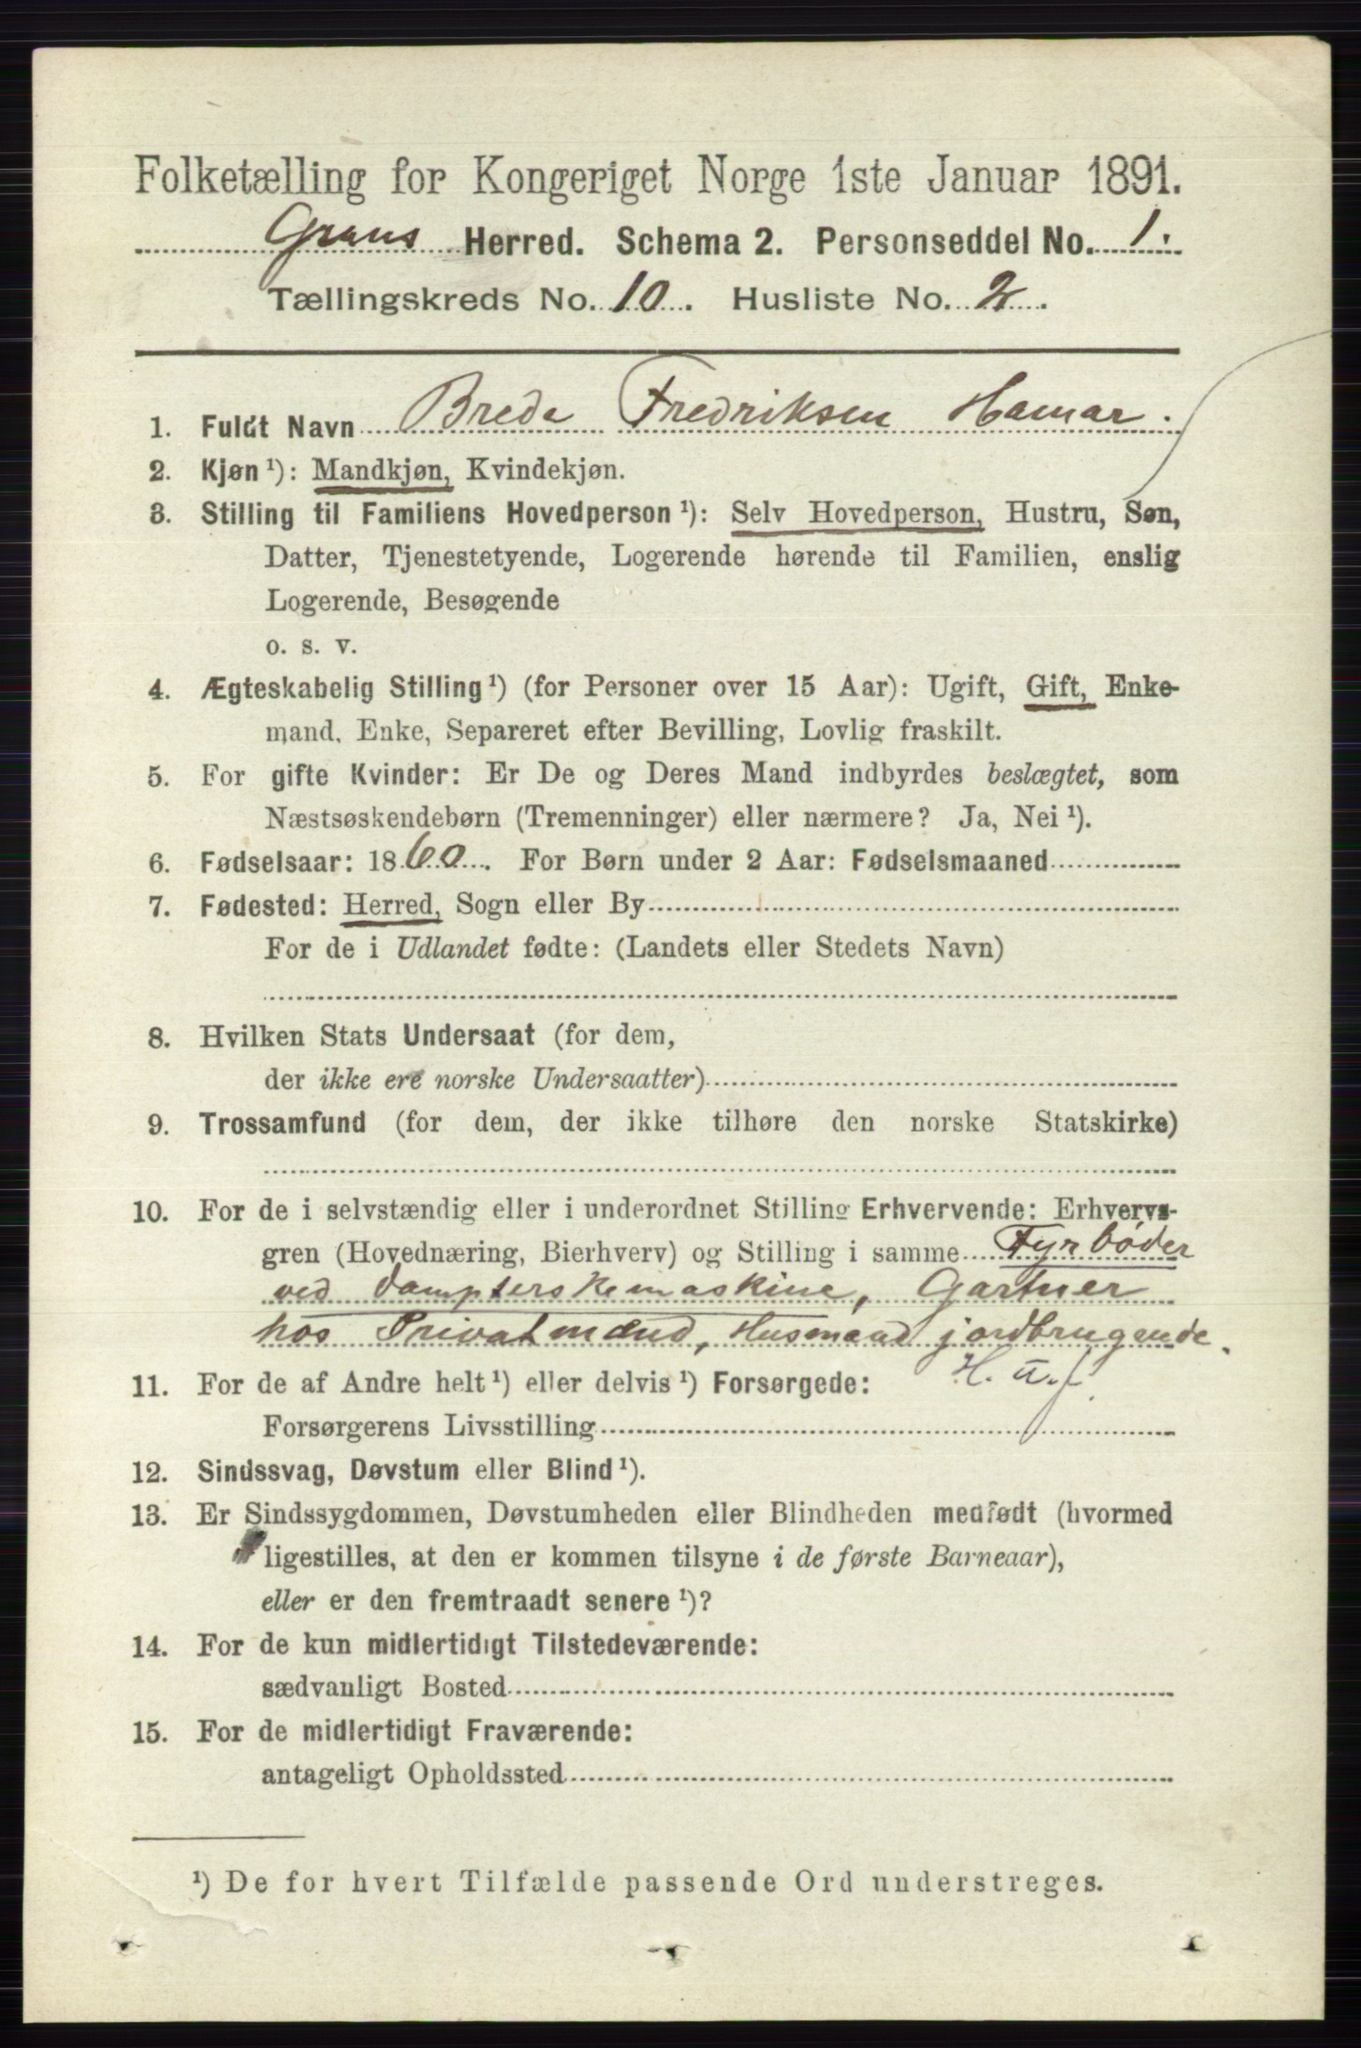 Folketælling for Kongeriget Norge 1ste Januar 1891.
Grans Herred. Schema 2. Personseddel No. 1.
Tællingskreds No. 10. Husliste No. 2.
1. Fuldt Navn Brede Fredriksen Hamar.
2. Kjøn ¹): Mandkjøn, Kvindekjøn.
3. Stilling til Familiens Hovedperson ¹): Selv Hovedperson, Hustru, Søn,
Datter, Tjenestetyende, Logerende hørende til Familien, enslig
Logerende, Besøgende
o. s. v.
4. Ægteskabelig Stilling ¹) (for Personer over 15 Aar): Ugift, Gift, Enke-
mand, Enke, Separeret efter Bevilling, Lovlig fraskilt.
5. For gifte Kvinder: Er De og Deres Mand indbyrdes beslægtet, som
Næstsøskendebørn (Tremenninger) eller nærmere? Ja, Nei ¹).
6. Fødselsaar: 1860. For Børn under 2 Aar: Fødselsmaaned
7. Fødested: Herred, Sogn eller By
For de i Udlandet fødte: (Landets eller Stedets Navn)
8. Hvilken Stats Undersaat (for dem,
der ikke ere norske Undersaatter)
9. Trossamfund (for dem, der ikke tilhøre den norske Statskirke)
10. For de i selvstændig eller i underordnet Stilling Erhvervende: Erhvervs-
gren (Hovednæring, Bierhverv) og Stilling i samme Fyrbøder
ved Damptærskemaskine, Gartner
hos Privatmænd, Husmand jordbrugende.
H. u. j.
11. For de af Andre helt ¹) eller delvis ¹) Forsørgede:
Forsørgerens Livsstilling
12. Sindssvag, Døvstum eller Blind ¹).
13. Er Sindssygdommen, Døvstumheden eller Blindheden medfødt (hvormed
ligestilles, at den er kommen tilsyne i de første Barneaar),
eller er den fremtraadt senere ¹)?
14. For de kun midlertidigt Tilstedeværende:
sædvanligt Bosted
15. For de midlertidigt Fraværende:
antageligt Opholdssted
¹) De for hvert Tilfælde passende Ord understreges.